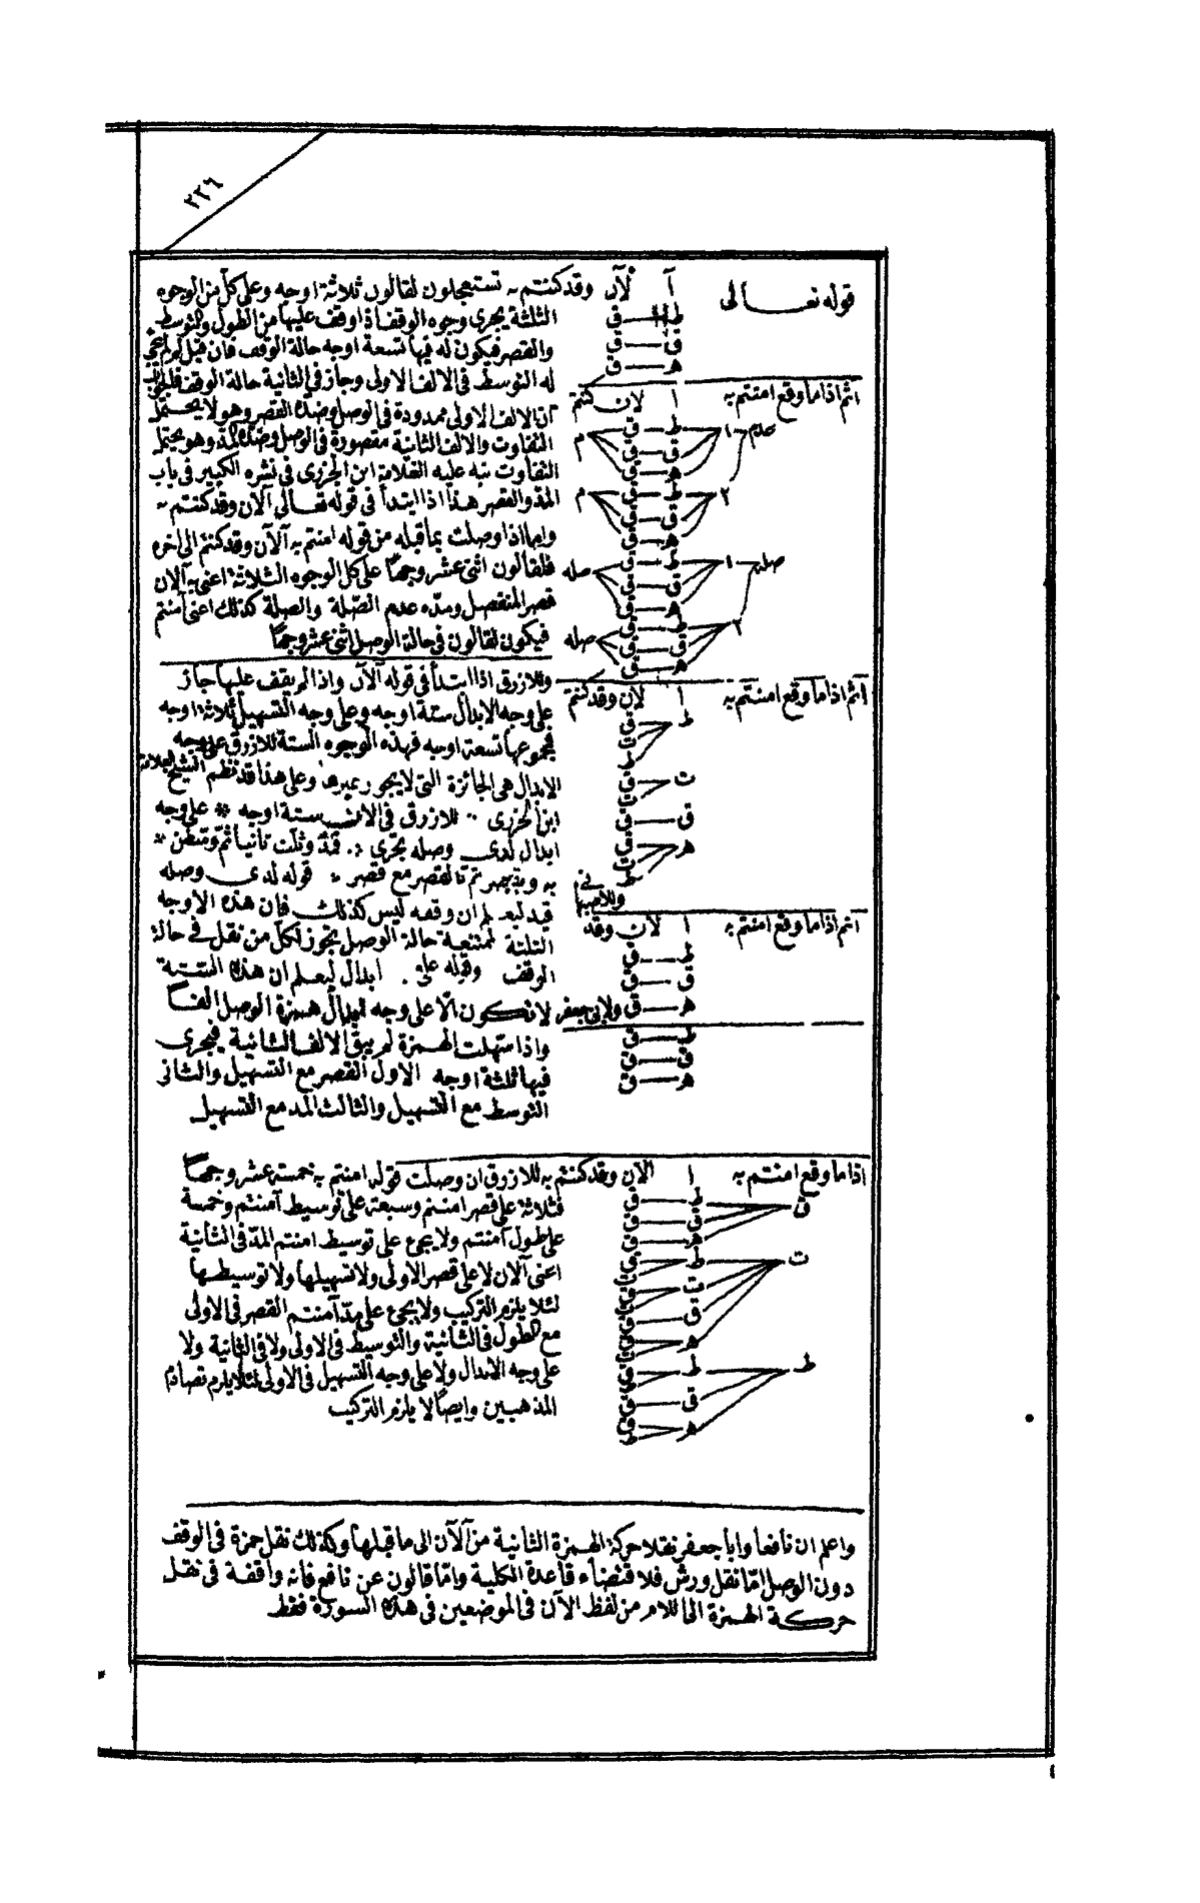 ٢٢٦
قوله تعالى آ لآن وقد كنتم به تستعجلون لقالون ثلاثة اوجه وعلى كل من الوجوه
الثلثة يجرى وجوه الوقف اذا وقف عليها من الطول والتوسط
والقصر فيكون له فيها تسعة اوجه حالة الوقف فان قيل لم
له التوسط فى الالف الاولى وجاز فى الثانية حالة الوقف
ان الالف الاولى ممدودة فى الوصل وضده القصر وهو لا يحتمل
التفاوت والالف الثانية مقصورة فى الوصل وضده المد وهو يحتمل
التفاوت نبه عليه العلامة ابن الجزرى فى نشره الكبير فى باب
المد والقصر هذا اذا ابتدأ فى قوله تعالى آلآن وقد كنتم به
واما اذا وصلت بما قبله من قوله امنتم به آلآن وقد كنتم الى اخره
فلقالون اثنى عشر وجها على كل الوجوه الثلاثة اعنى به آلآن
قصر المنفصل ومده عدم الصلة والصلة كذلك اعنى آمنتم
فيكون لقالون فى حالة الوصل اثنى عشر وجها
ط ق
ق ق
ه ق
اثم اذا ما وقع امنتم به ا لان كنتم
عدم ١ ط ق
ق ق م
ه ق
٢ ط ق م
ق ق
ه ق
صله ١ ط ق
ق ق صله
ه ق
٢ ط ق
ق ق صله
ه ق
وللازرق اذا ابتدأ فى قوله آلآن واذا لم يقف عليها جاز
على وجه الابدال ستة اوجه وعلى وجه التسهيل ثلاثة اوجه
فمجموعها تسعة اوجه فهذه الوجوه الستة للازرق على وجه
الابدال هى الجائزة التى لا يجوز غيرها وعلى هذا قد نظم الشيخ العلامة
ابن الجزرى للازرق فى الان ستة اوجه * على وجه
ابدال لدى وصله تجرى فمد وثلث ثانيا ثم وسطن *
به وبقصر ثم بالقصر مع قصر قوله لدى وصله
قيد ليعلم ان وقفه ليس كذلك فان هذه الاوجه
الثلثة لممتنعة حالة الوصل يجوز لكل من نقل فى حالة
الوقف وقوله على ابدال ليعلم ان هذه الستة
لا تكون الا على وجه ابدال همزة الوصل الفا
واذا سهلت الهمزة لم يبق الالف الثانية فيجرى
فيها ثلثة اوجه الاول القصر مع التسهيل والثانى
التوسط مع التسهيل والثالث المد مع التسهيل
اثم اذا ما وقع امنتم به ا لان وقد كنتم
ط ق
ت ق
ق ق
ه ق
وللاصبهانى
اثم اذا ما وقع امنتم به ا لان وقد
ط ق
ق ق
ه ق ولابى جعفر
ط ق
ق ق
ه ق
اذا ما وقع امنتم به ا الآن وقد كنتم به للازرق ان وصلت قوله امنتم به خمسة عشر وجها
فثلاثة على قصر امنتم وسبعة على توسيط آمنتم وخمسة
على طول آمنتم ولا يجئ على توسيط امنتم المد فى الثانية
اعنى آلان لا على قصر الاولى ولا تسهيلها ولا توسيطها
لئلا يلزم التركيب ولا يجئ على مد آمنتم القصر فى الاولى
مع الطول فى الثانية والتوسيط فى الاولى ولا فى الثانية ولا
على وجه الابدال ولا على وجه التسهيل فى الاولى لئلا يلزم تصادم
المذهبين وايضا لا يلزم التركيب
ق ط ق
ق ق
ه ق
ت ط ق
ت ق
ق ق
ه ق
ط ط ق
ق ق
ه ق
واعلم ان نافعا وابا جعفر نقلا حركة الهمزة الثانية من آلآن الى ما قبلها وكذلك نقل حمزة فى الوقف
دون الوصل اما نقل ورش فلاقتضاء قاعدة الكلية واما قالون عن نافع فانه وافقه فى نقل
حركة الهمزة الى اللام من لفظ الآن فى الموضعين فى هذه السورة فقط